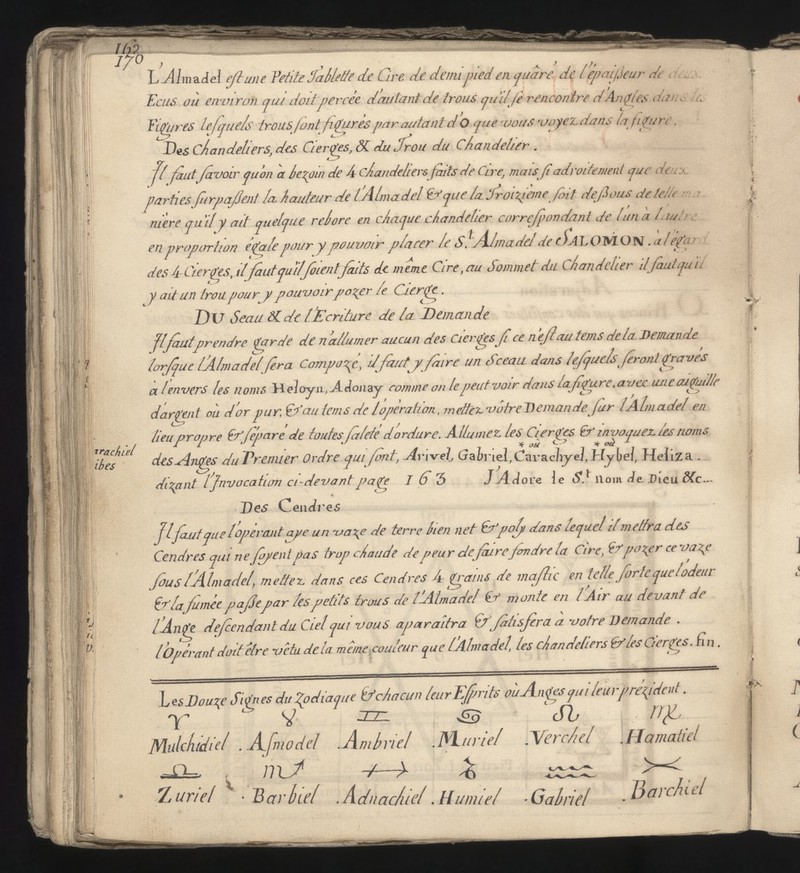 162
170
L'Almadel est une Petite Tablette de Cire de demi pied en quâré, de l'épaißeur de deux
Ecus où environ qui doit percée d'autant de trous qu'il se rencontre d'Angles dans les
Figures lesquels trous sont figurés par autant d'O que vous voyez dans la figure.
Des Chandeliers, des Cierges, & du Trou du Chandelier.
Il faut savoir qu'on à bezoin de 4 chandeliers faits de Cire, mais si adroitement que deux
parties surpaßent la hauteur de l'Almadel & que la Troizième soit deßous de telle ma
nière qu'il y ait quelque rebore en chaque chandelier correspondant de l'un à l'autre
en proportion égale pour y pouvoir placer le S.t Almadel de SALOMON. à l'égard
des 4 Cierges, il faut qu'il soient faits de même Cire, au Sommet du Chandelier il faut qu'il
y ait un trou pour y pouvoir pozer le Cierge.
DU Seau & de l'Ecriture de la Demande
Il faut prendre garde de n'allumer aucun des Cierges si ce n'est au tems de la Demande
lorsque l'Almadel sera Compozé, il faut y faire un Sceau dans lesquels seront gravés
à l'envers les noms Heloyn, Adonay comme on le peut voir dans la figure, avec une aiguille
d'argent où d'or pur, & au tems de l'opération, mettez vôtre Demande sur l'Almadel en
lieu propre & séparé de toutes saleté d'ordure. Allumez les Cierges & invoquez les noms
* où * où
des Anges du Premier Ordre qui sont, Arivel, Gabriel, Carachyel, Hybel, Heliza.
trachiel
ibes
dizant l'Invocation ci-devant page 163 J'Adore le S.t nom de Dieu &c...
Des Cendres
Il faut que l'opérant aye un vaze de terre bien net & poly dans lequel il mettra des
Cendres qui ne soyent pas trop chaude de peur de faire fondre la Cire, & pozer ce vaze
sous l'Almadel, mettez dans ces Cendres 4 grains de mastic en telle sorte que l'odeur
& la fumée paße par les petits trous de l'Almadel & monte en l'Air au devant de
l'Ange descendant du Ciel qui vous aparaitra & satisfera à votre Demande.
l'Opérant doit être vêtu de la même couleur que l'Almadel, les chandeliers & les Cierges. fin.
Les Douze Signes du Zodiaque & chacun leur Esprits où Anges qui leur prézident.
♈ ♉ ♊ ♋ ♌ ♍
Mulchidiel . Asmodel . Ambriel . Muriel . Verchel . Hamatiel
♎ ♏ ♐ ♑ ♒ ♓
Zuriel . Barbiel . Adnachiel . Humiel . Gabriel . Barchiel